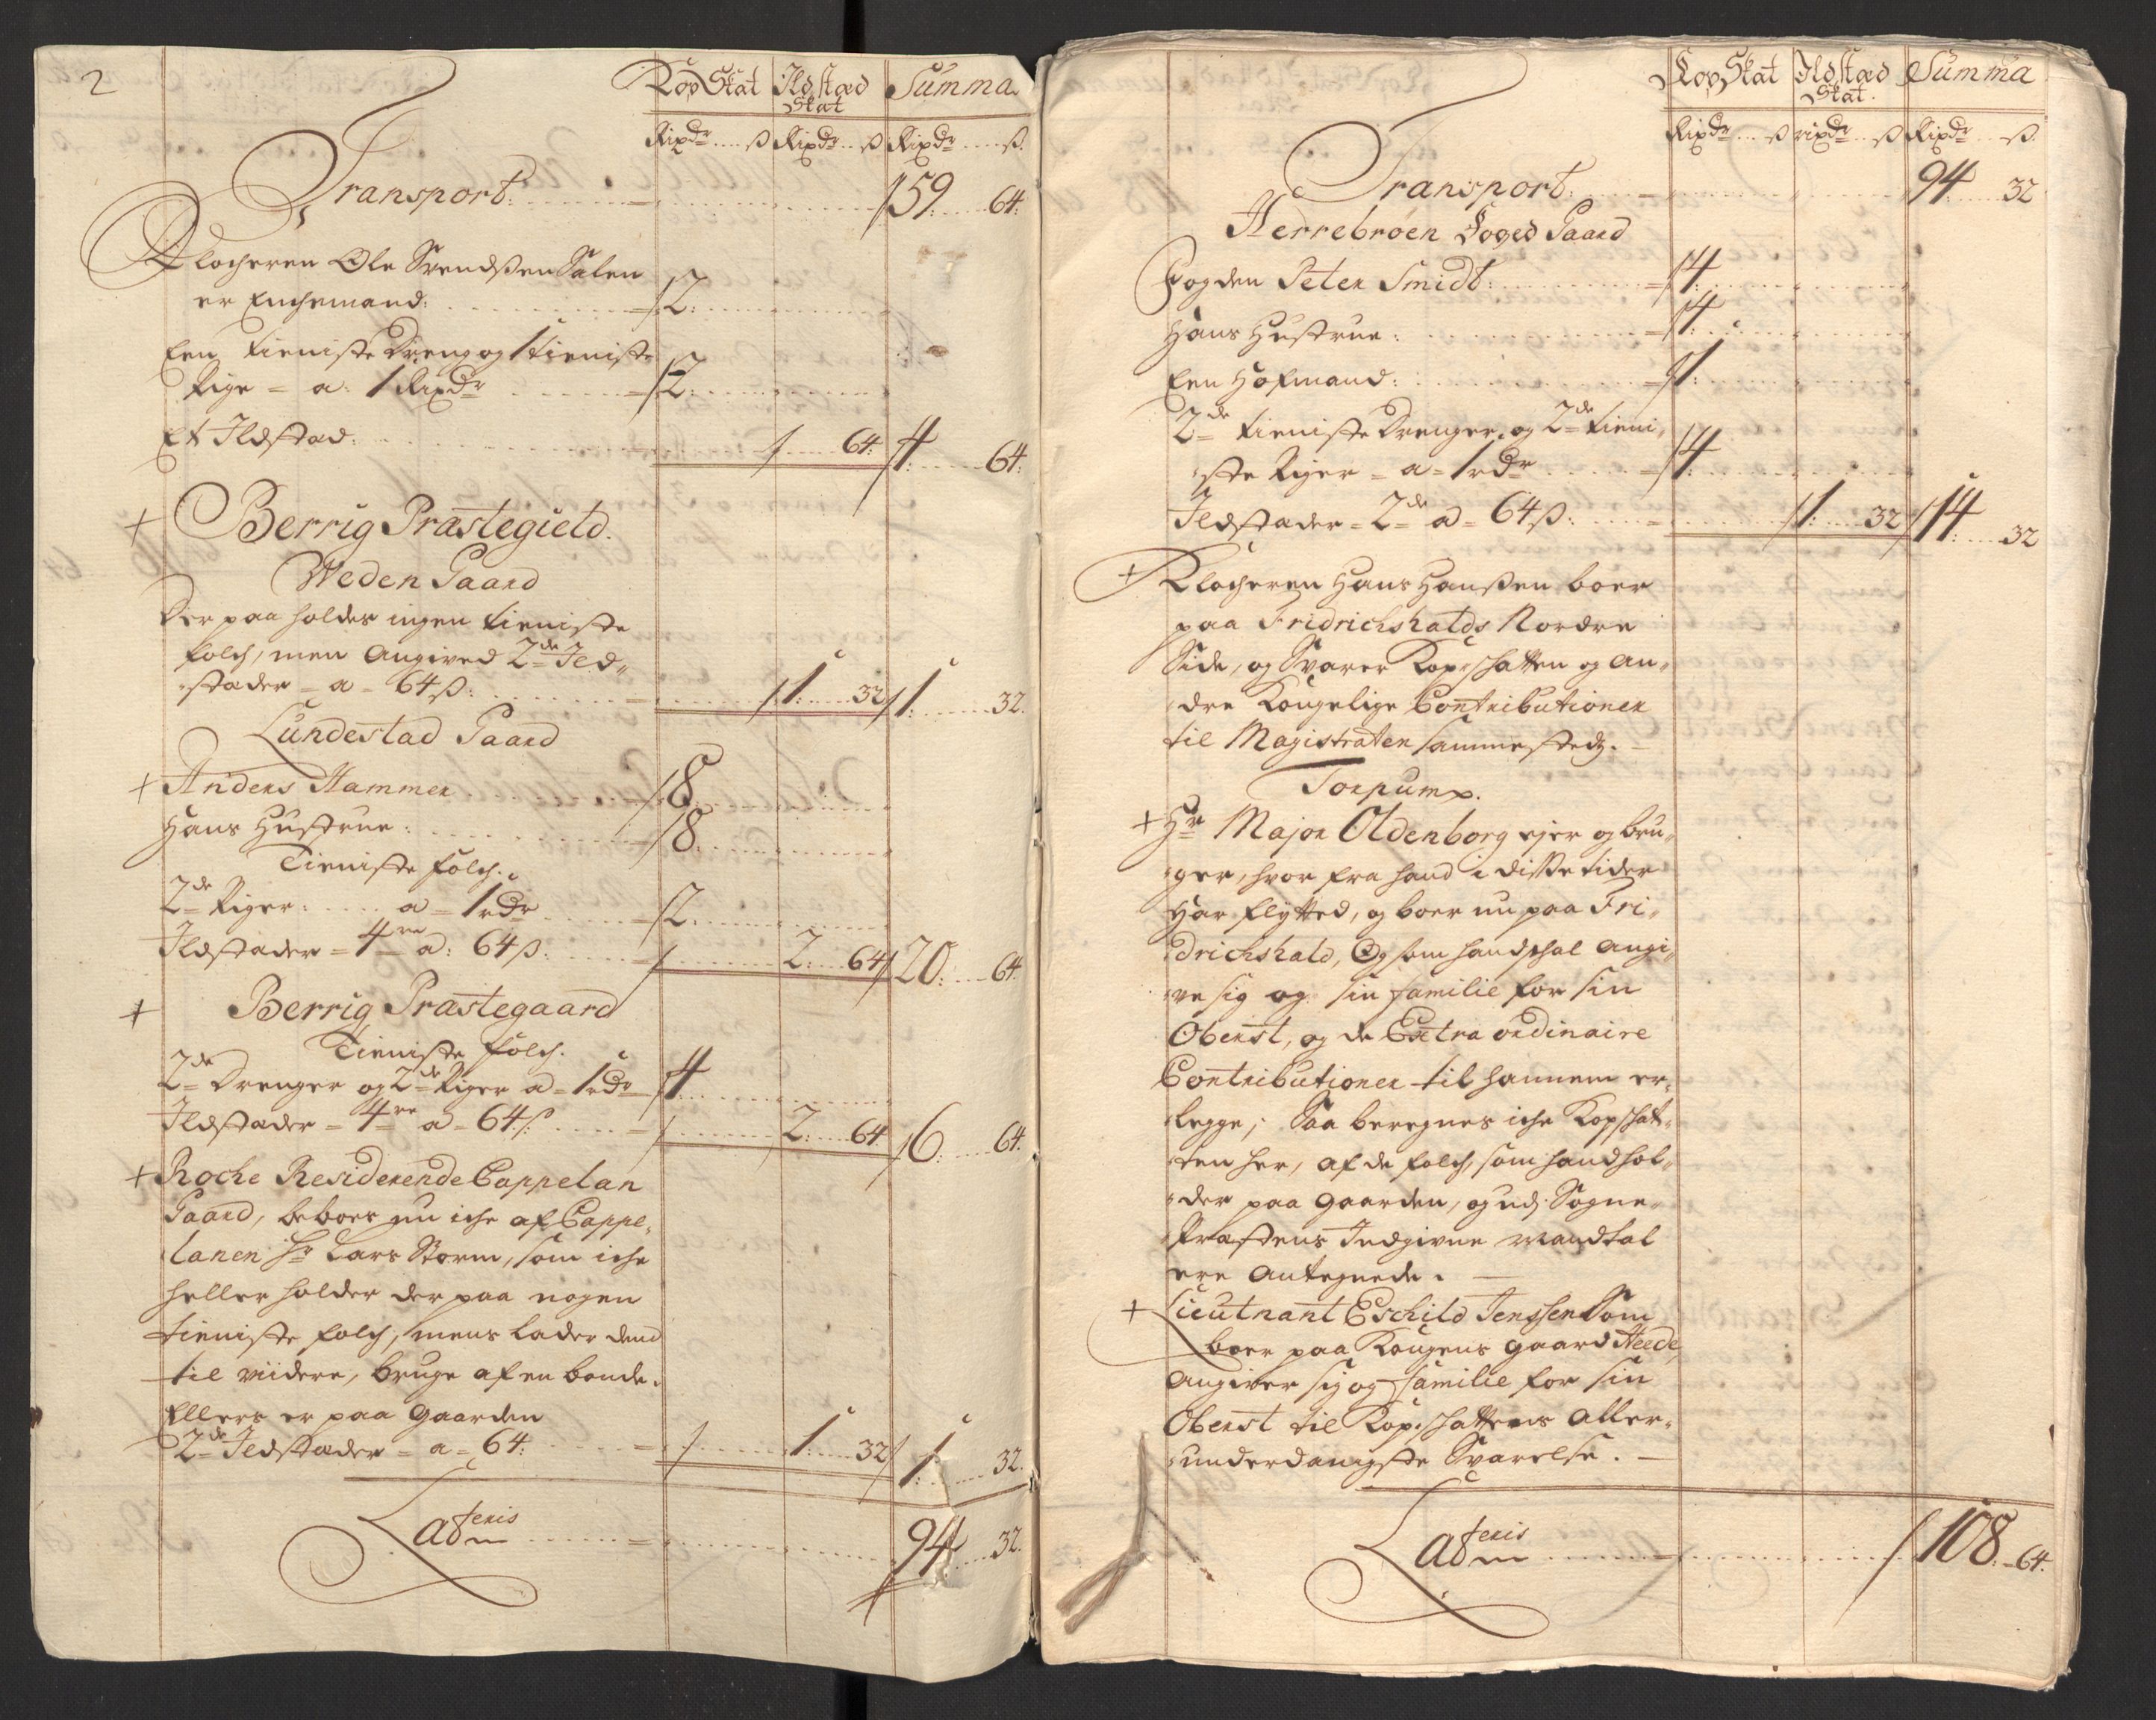 2
Kop Skat Ildstæd Skat Summa
Rixdr ß Rixdr ß Rixdr ß
Transport: 59 64
Klocheren Ole Svendßen Salen
er Enchemand: 2
Een tieniste Dreng og 1 tieniste
Pige = a: 1 Rixdr 2
Et Ildstæd: 64 4 64
+ Berrig Præstegield.
Weden Gaard
Der paa holdes ingen tieniste
folch, men Angived 2de Ild„
„stæder = a = 64 ß: 1 32 1 32
Lundestad Gaard
+ Anders Hammer 8
Hans Hustrue: 8
Tieniste folch:
2de Piger: a = 1 rdr 2
Ildstæder = 4re a: 64 ß: 2 64 20 64
+ Berrig Præstegaard
Tieniste folch.
2de Drenger og 2de Piger a = 1 rdr 4
Ildstæder = 4re a = 64 ß 2 64 6 64
+ Roche Residerende Cappelan
Gaard, beboes nu iche af Cappe„
lanen Hr Lars Storm, som iche
heller holder der paa nogen
tieniste folch, mens lader dend
til viidere, bruge af en bonde.
Ellers er paa Gaarden
2de Ildstæder = a = 64: 1 32 1 32
Lateris 94 32
Kop Skat Ildstæd Skat. Summa
Rixdr ß rixdr ß Rixdr ß
Transport: 94 32
Herrebroen Hoved Gaard
Fogden Peter Smidt: 4
Hans Hustrue: 4
Een Hofmand: 1
2de tieniste Drenger, og 2de tieni„
„ste Piger = a = 1 rdr 4
Ildstæder = 2de a = 64 ß: 1 32 14 32
+ Klocheren Hans Hanßen boer
paa Fridrichshalds Nordre
Side, og Svarer Kopschatten og an„
dre Kongelige Contributioner
til Magistraten sammestedz.
Torpum.
+ Hr Major Oldenborg ejer og bru„
„ger, hvor fra hand i disse tider
Har flytted, og boer nu paa Fri„
drichshald, Og som hand schal Angi„
„ve sig og sin familie for sin
Oberst, og de Extra ordinaire
Contributioner til hannem er„
legge; Saa beregnes iche Kopschat„
„ten her, af de folch, som hand hol„
„der paa gaarden, og udj Sogne„
Præstens Indgivne Mandtal
ere Antegnede.
+ Lieutnant Eschild Jenssen Som
boer paa Kongens gaard Heede,
Angiver sig og familie for sin
Oberst til Kopschattens Aller„
„underdanigste Svarelse.
Lateris 108 64